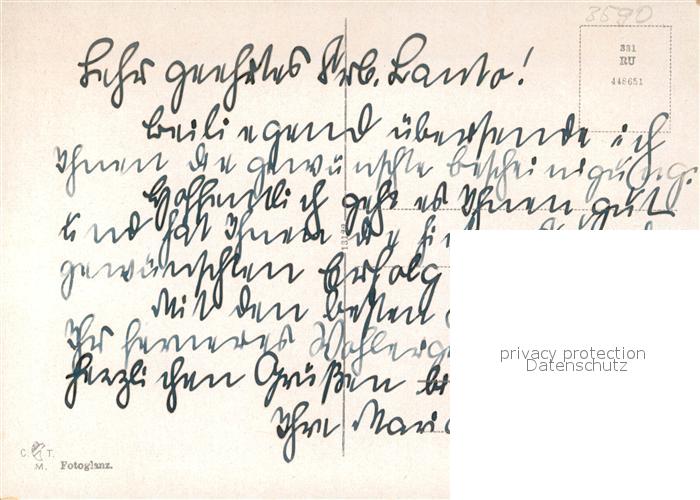 3590
381
RU
448651
Sehr geehrtes Frl.
Beiliegend übersende ich
Ihnen die gewünschte Bescheinigung.
Hoffentlich geht es Ihnen gut
und hat Ihnen die
gewünschten Erfolg
Mit den besten
Ihr ferneres
herzlichen Grüßen
Ihre
privacy protection
Datenschutz
C. T.
M. Fotoglanz.